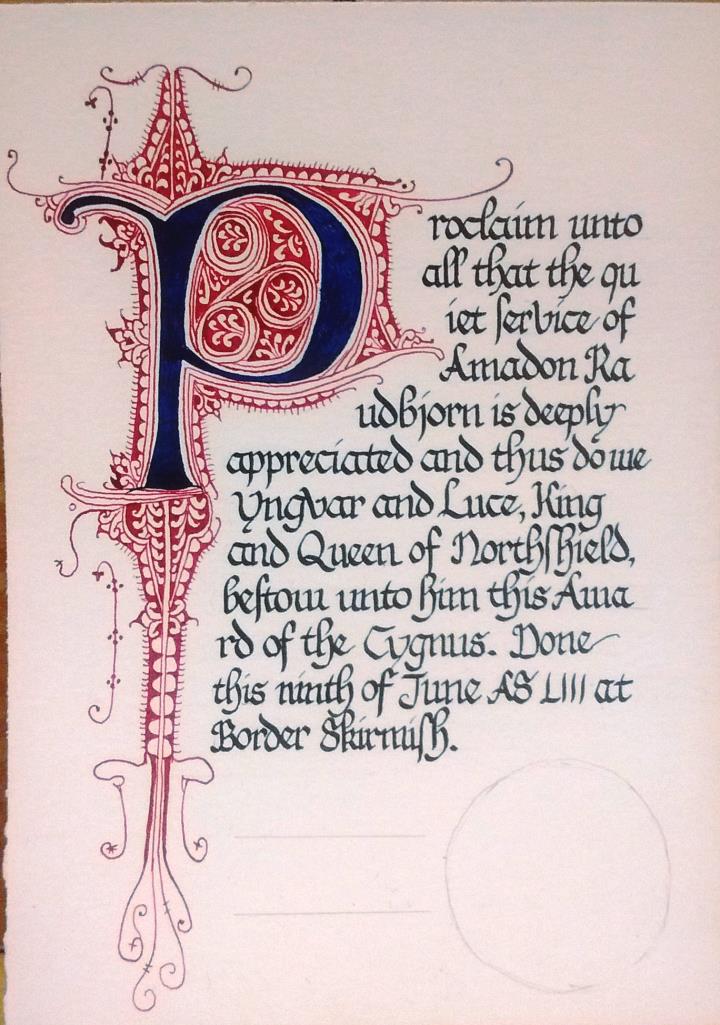 Proclaim unto
all that the qu
iet ſervice of
Amadon Ra
udbjorn is deeply
appreciated and thus do we
Yngvar and Luce, King
and Queen of Northſhield,
beſtow unto him this Awa
rd of the Cygnus. Done
this ninth of June AS LIII at
Border Skirmiſh.